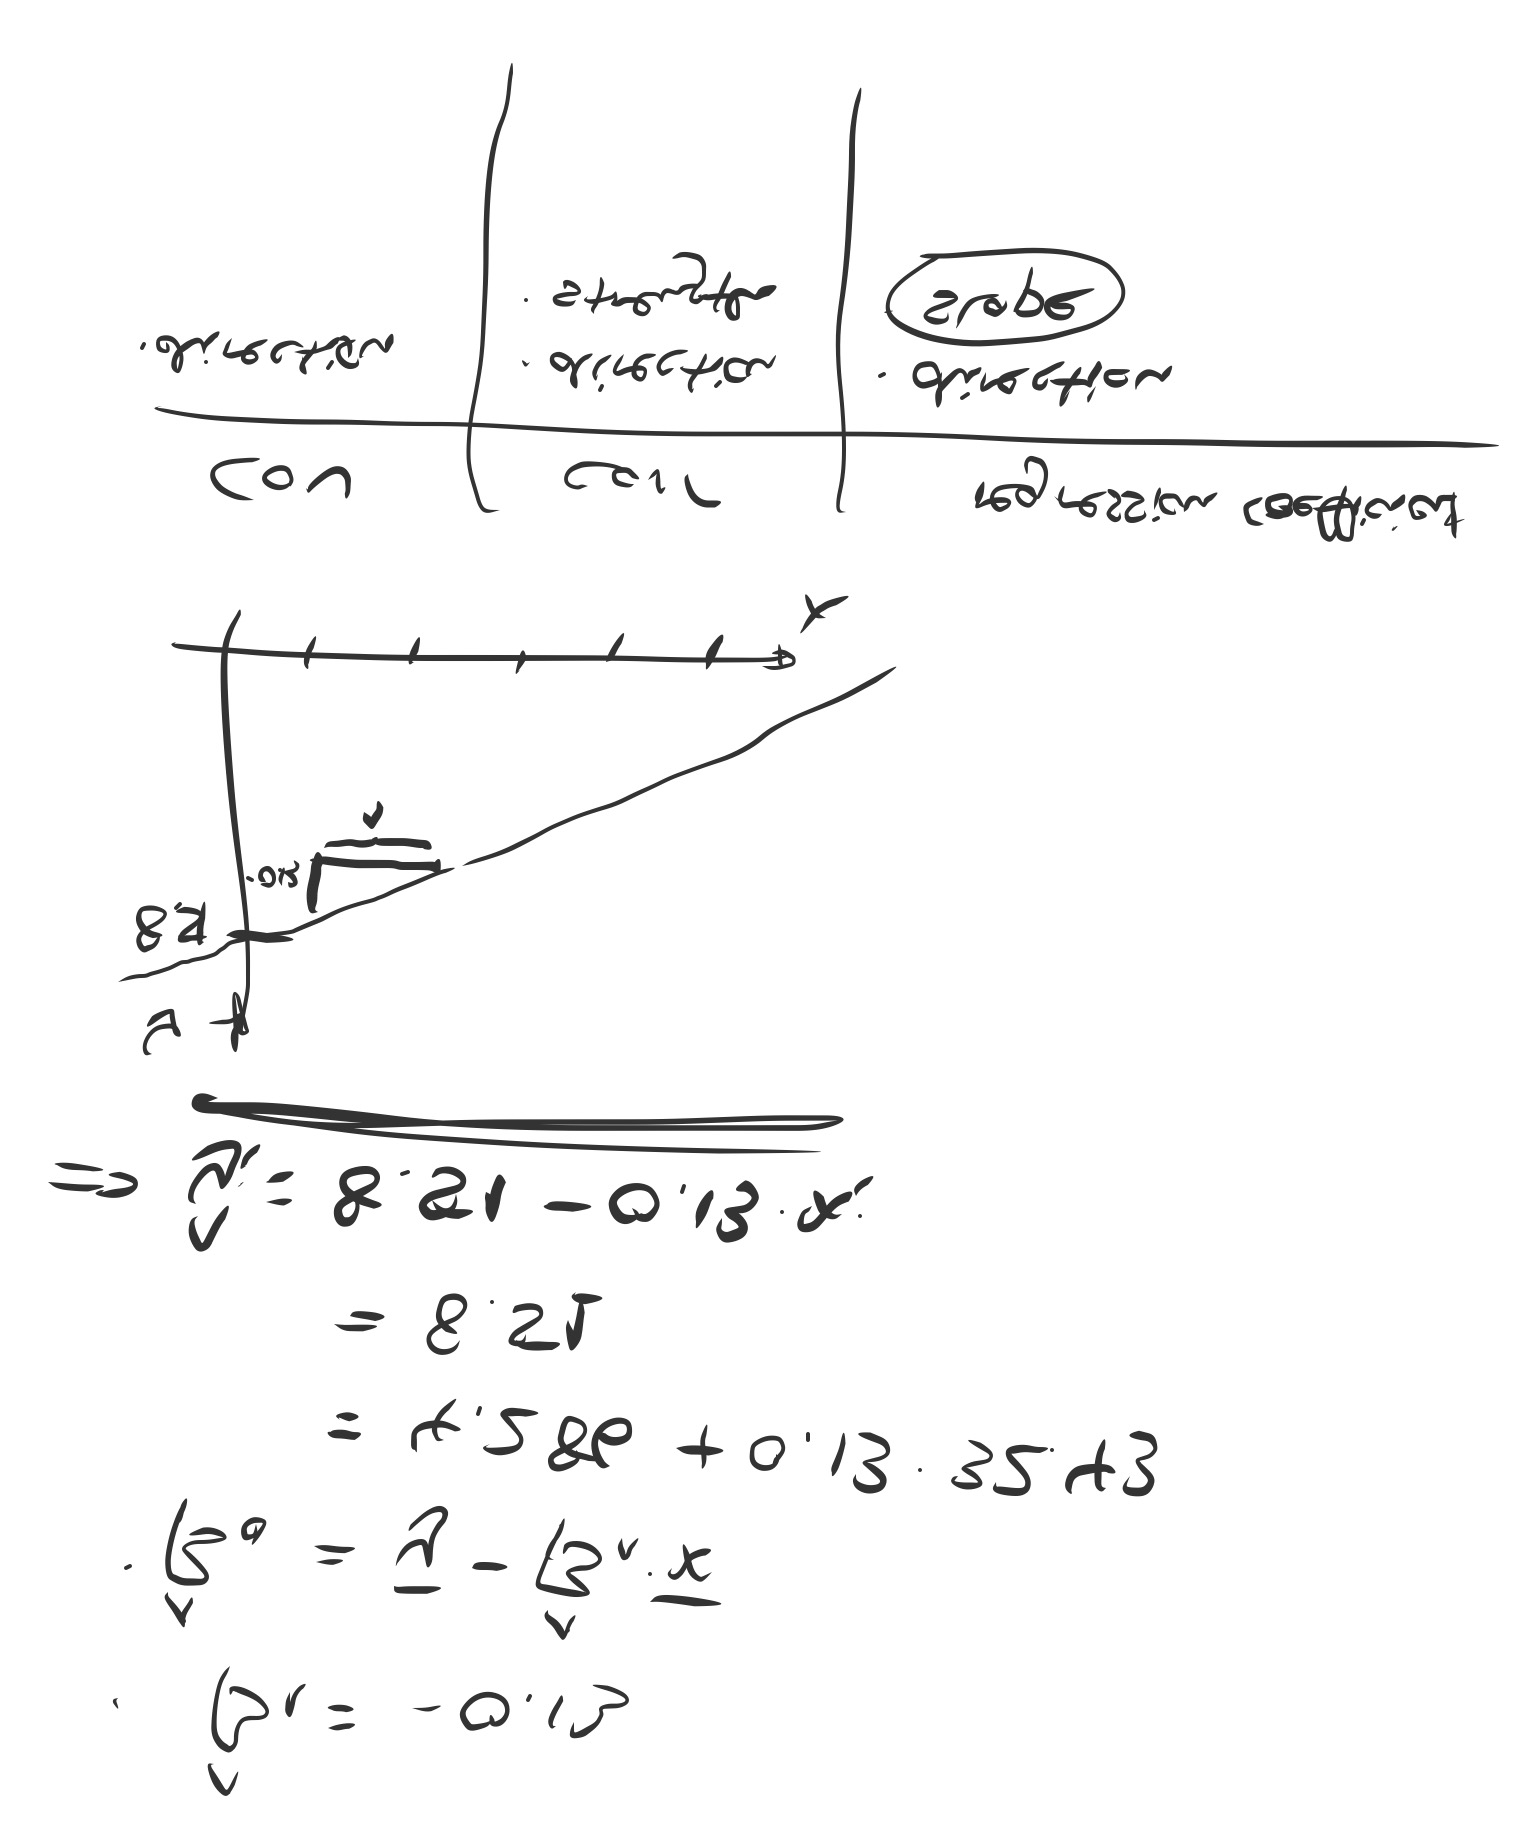 · β̂₁ = -0.13
· β̂₀ = ȳ - β̂₁ · x̄
= 4.286 + 0.13 · 32.43
= 8.51
⇒ ŷᵢ = 8.51 - 0.13 · xᵢ
y
8.51
-0.13
1
x
cov | corr | regression coefficient
· direction | · direction | · direction
· strength | slope